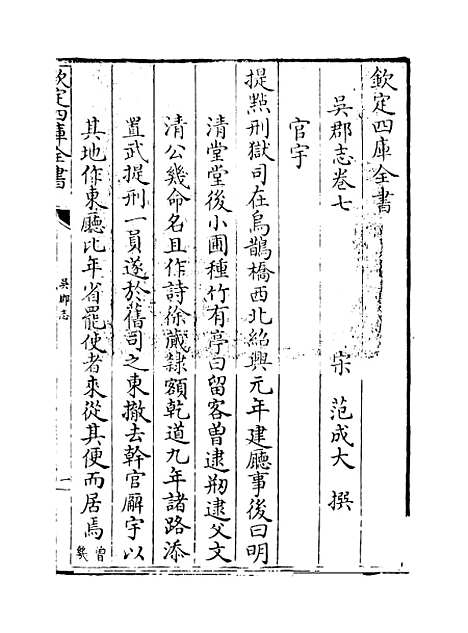 欽定四庫全書
吳郡志卷七
宋 范成大 撰
官宇
提㸃刑獄司在烏鵲橋西北紹興元年建廳事後曰明
清堂堂後小圃種竹有亭曰留客曾逮剏逮父文
清公幾命名且作詩徐蕆隸額乾道九年諸路添
置武提刑一員遂於舊司之東撤去幹官廨宇以
其地作東廳比年省罷使者來從其便而居焉 曾
幾
欽定四庫全書
吳郡志
一